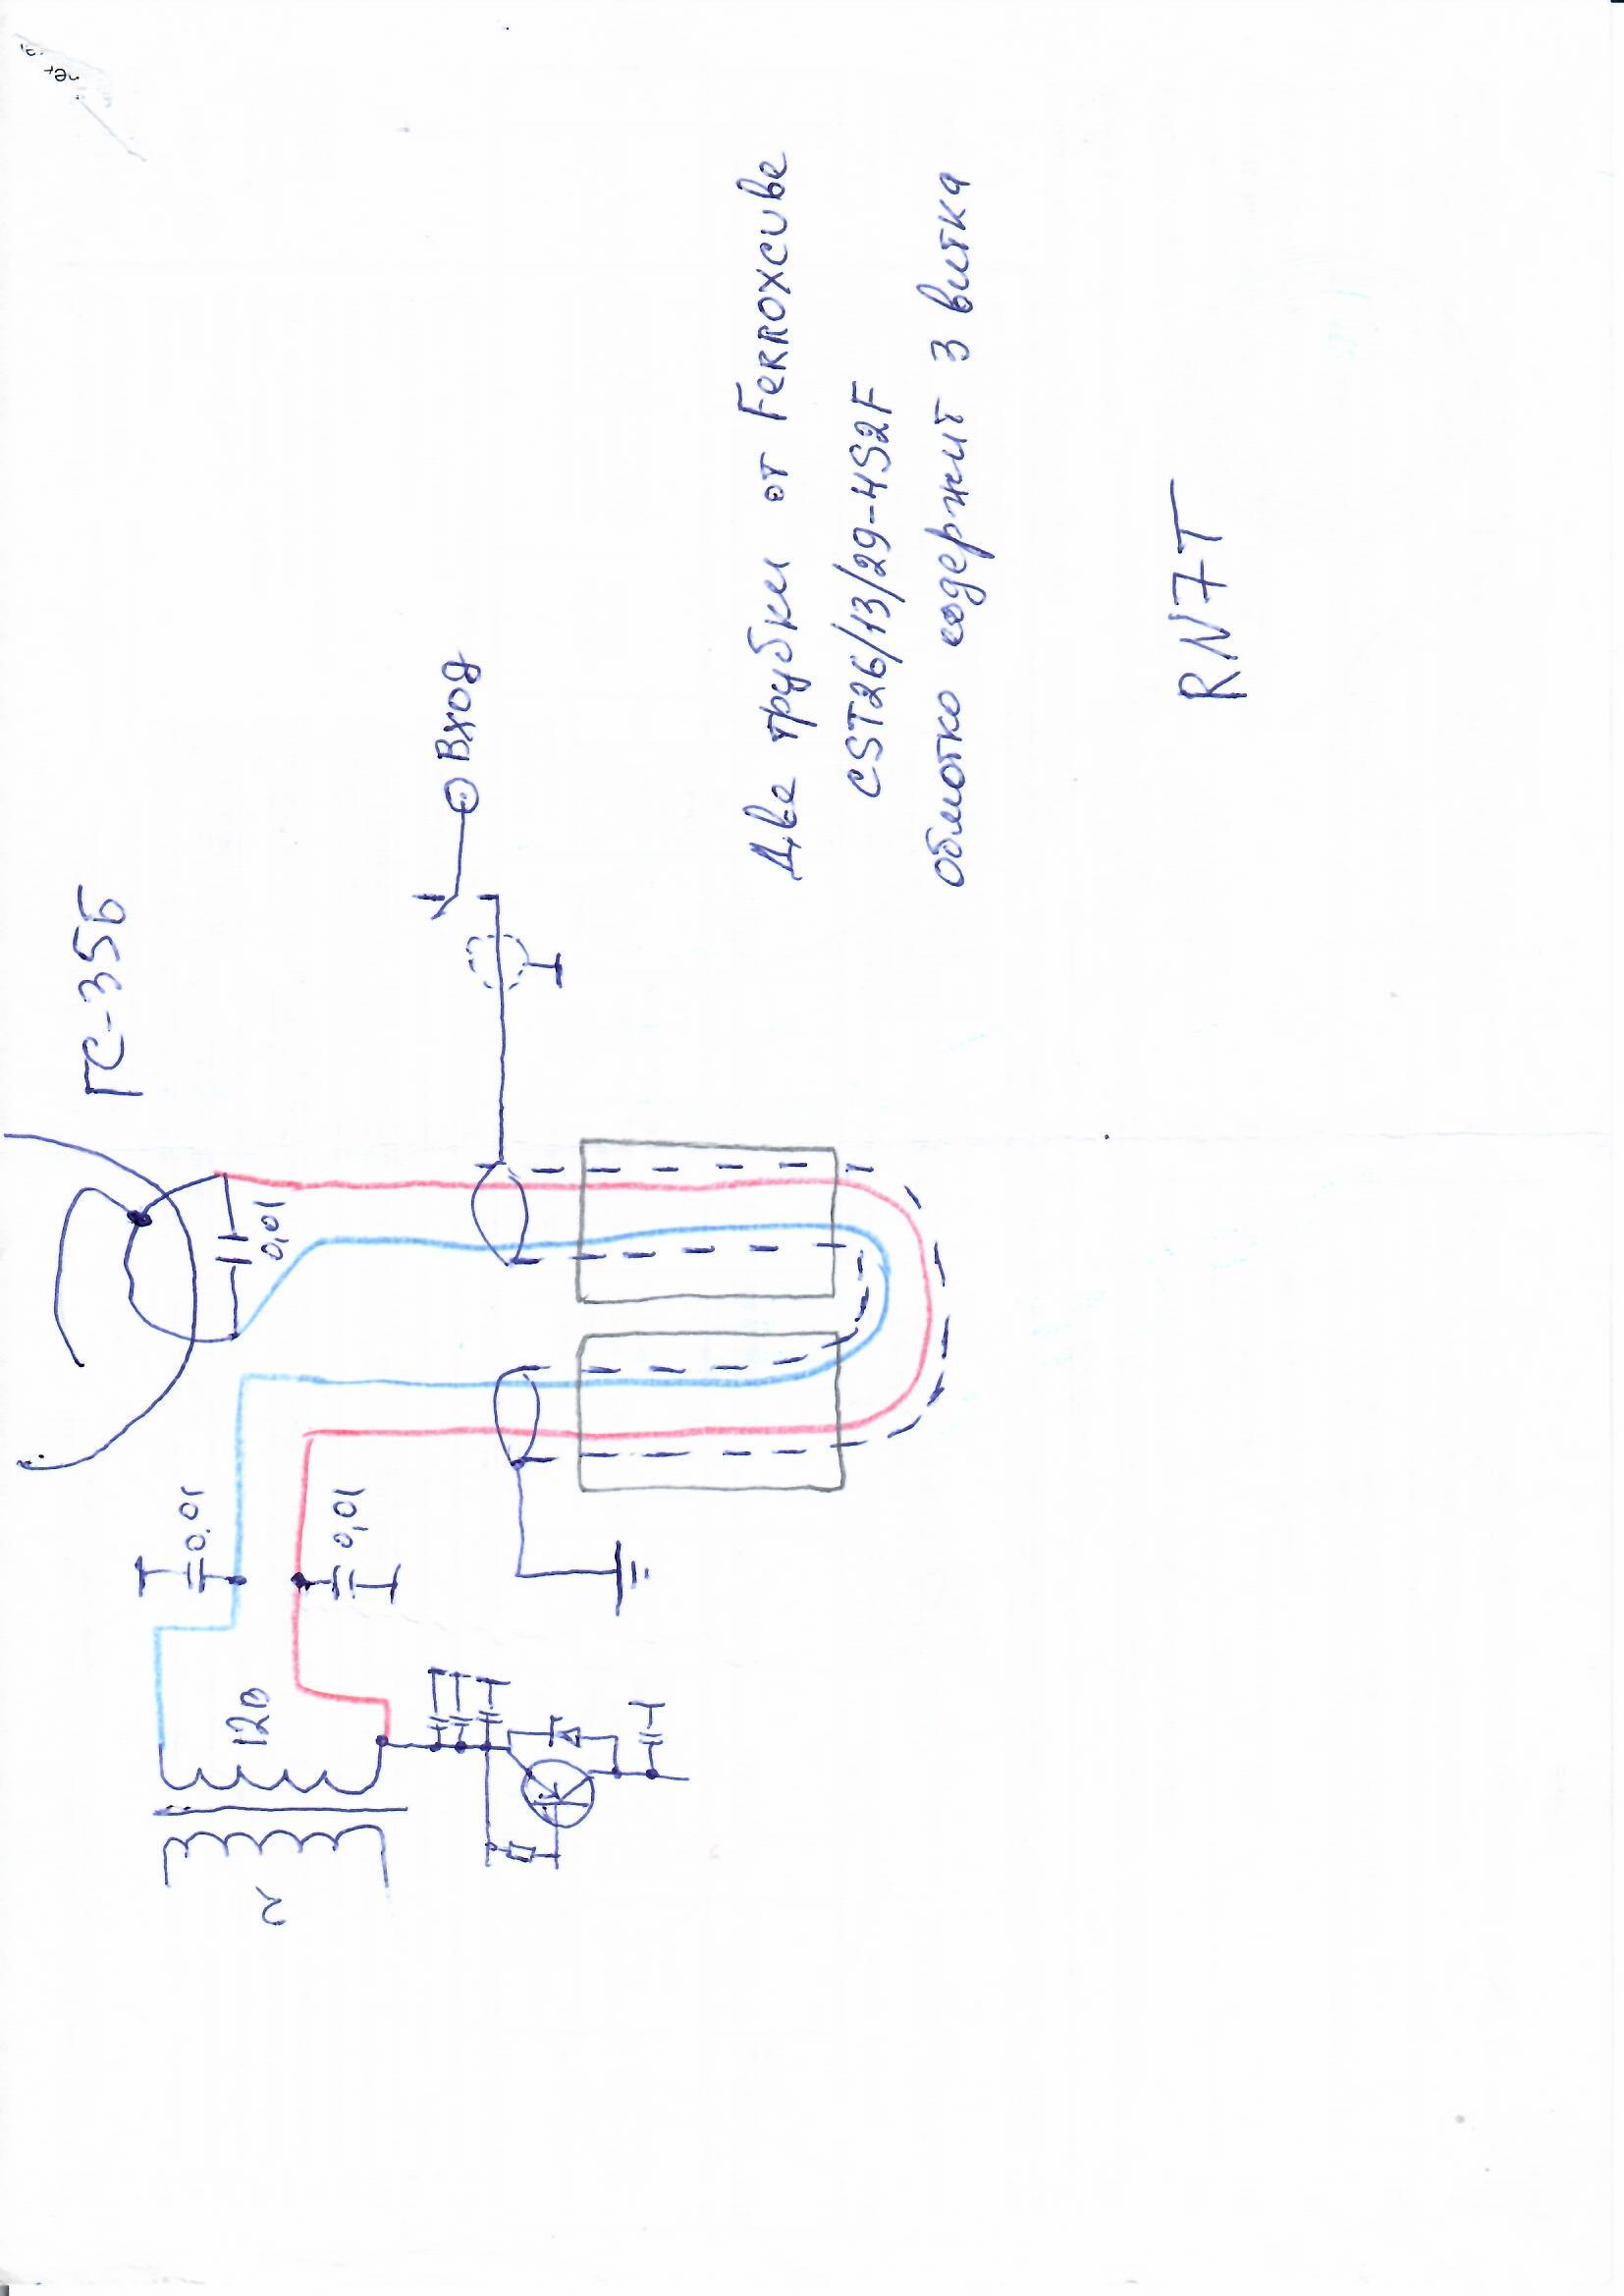 ГС-35Б
0,01
0,01
0,01
12В
Вход
Две трубки от Ferroxcube
CST26/13/29-4S2F
Обмотка содержит 3 витка
RN7T